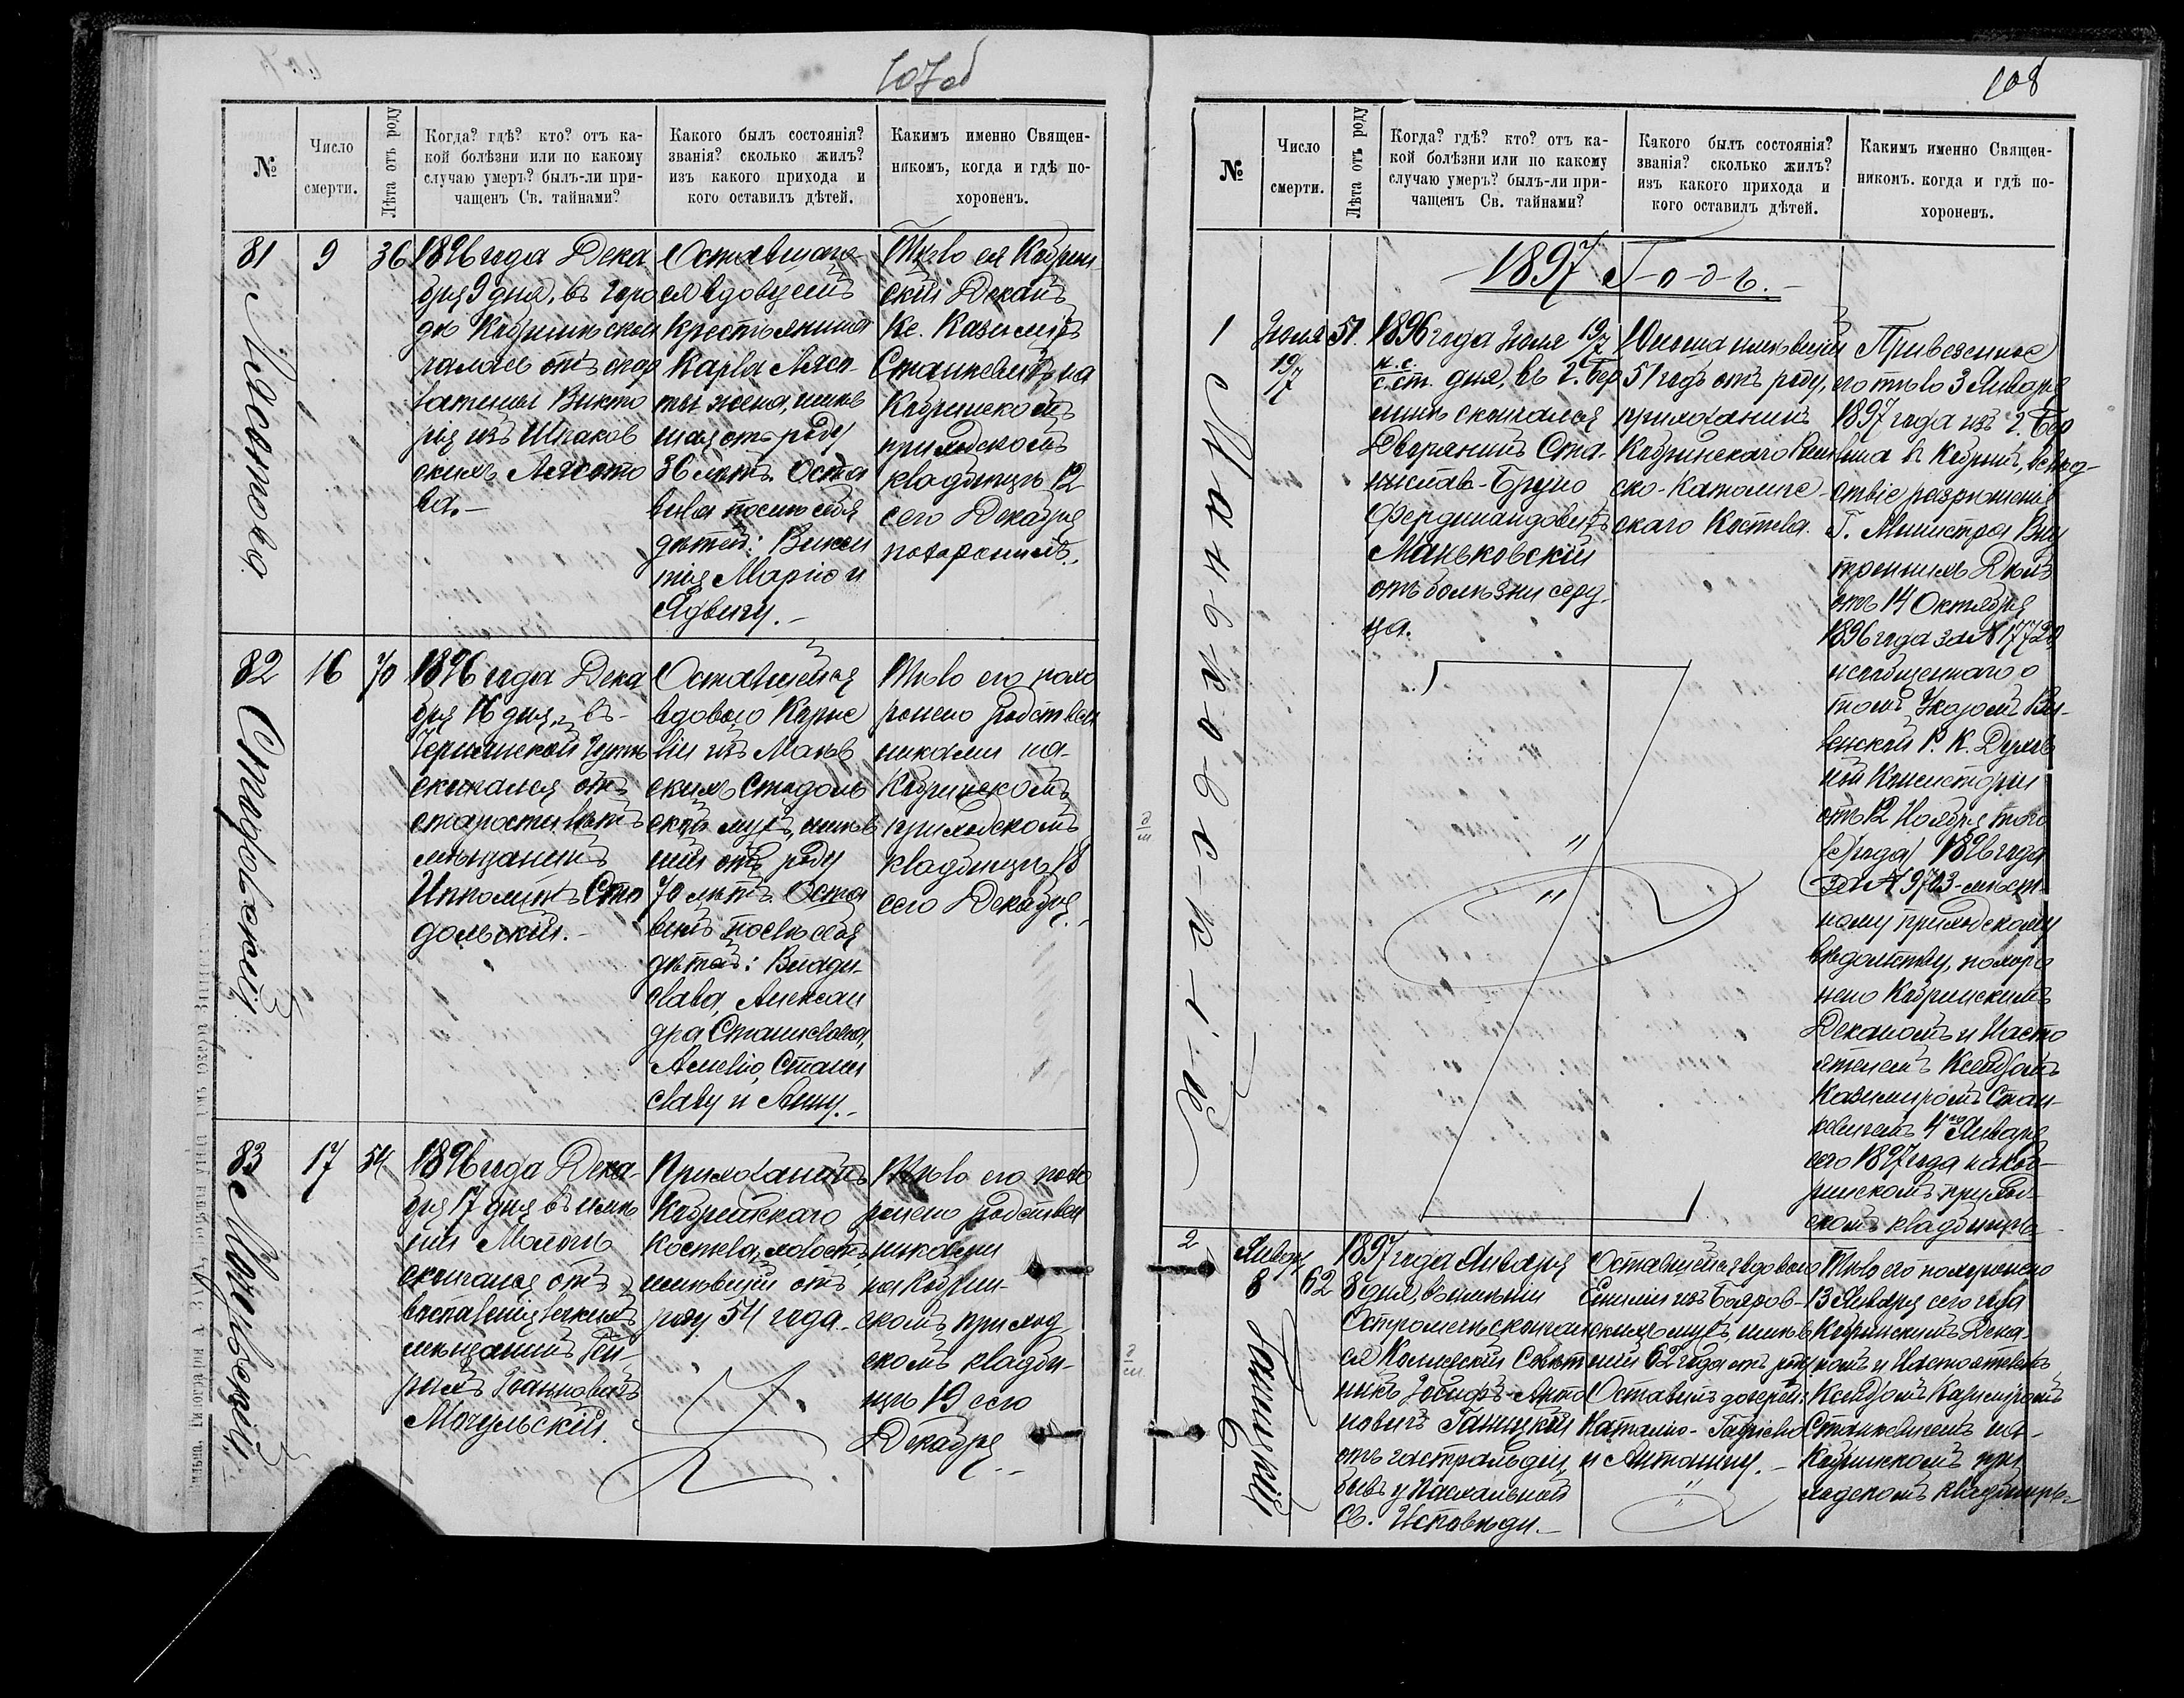 107об
№
Число
смерти.
Лѣта отъ роду
Когда? гдѣ? кто? отъ ка-
кой болѣзни или по какому
случаю умеръ? былъ-ли при-
чащенъ Св. тайнами?
Какого былъ состоянія?
званія? сколько жилъ?
изъ какого прихода и
кого оставилъ дѣтей.
Каким именно Священ-
никомъ, когда и гдѣ по-
хороненъ.
81
Лясотова
9
36
1896 года Дека
бря 9 дня, въ горо
дѣ Кобринѣ скон
чалась отъ скар
латины Викто
рія изъ Шпаков
скихъ Лясото
ва.-
Оставшаго-
ся вдовцемъ
Крестьянина
Карла Лясо-
ты жена, имѣв
шая отъ роду
36 лѣтъ. Оста
вила послѣ себя
дѣтей: Викен
тія Марію и
Ядвигу.-
Тѣло ея Кобрин-
скій Деканъ
Кс. Казиміръ
Станкевичъ на
Кобринскомъ
приходскомъ
кладбищѣ 12
сего Декабря
похоронилъ.
82
Стодольскій
16
70
1896 года Дека
бря 16 дня, въ-
скончался отъ
старости лѣтъ
мѣщанинъ
Ипполитъ Сто
дольскій.-
Оставшейся
вдовою
скихъ Стодоль
ской мужъ, имѣв
шій отъ роду
70 лѣтъ. Оста
вилъ послѣ себя
дѣтей: Влади-
слава, Алексан
дра, Станислава,
Амелію, Стани
славу и Анну.-
Тѣло его похо
ронено родствен
никами на-
Кобринскомъ
приходскомъ
кладбищѣ 18
сего Декабря.-
83
Мочульскій
17
54
1896 года Дека-
бря 17 дня въ имѣ
ніи
скончался отъ
воспаленія легкихъ
мѣщанинъ
Іоанновичъ
Мочульскій.
Прихожанинъ
Кобринскаго
Костела, холостъ,
имѣвшій отъ
роду 54 года.
Тѣло его похо
ронено родствен
никами
на Кобрин-
скомъ приход
скомъ кладби-
щѣ 19 сего
Декабря.-
108
№
Число
смерти.
Лѣта отъ роду
Когда? гдѣ? кто? отъ ка-
кой болѣзни или по какому
случаю умеръ? былъ-ли при-
чащенъ Св. тайнами?
Какого былъ состоянія?
званія? сколько жилъ?
изъ какого прихода и
кого оставилъ дѣтей.
Какимъ именно Священ-
никомъ. когда и гдѣ по-
хороненъ.
1897 Г-о-д-ъ.-
1
Іюля
19/7
51.
1896 года Іюля 19/7
н. с.
с. ст. дня, въ г. Бер
линѣ скончался
Дворянинъ Ста-
ниславъ-Бруно
Фердинандовичъ
Маньковскій
отъ болѣзни серд-
ца.
Юноша имѣвшій
51 годъ отъ роду,
прихожанинъ
Кобринскаго Рим
ско-Католиче-
скаго Костела.
Привезенное
его тѣло 3 Января
1897 года изъ г. Бер
лина въ Кобринъ, вслѣд-
ствіе разрѣшенія
Г. Министра Вну
треннихъ Дѣлъ
отъ 14 Октября
1896 года за № 17720,
и сообщеннаго о
томъ Указомъ Ви-
ленской Р. К. Духов
ной Консисторіи
отъ 12 Ноября того
(с) года) 1896 года
за № 9703-мѣст-
ному приходскому
вѣдомству, похоро
нено Кобринскимъ
Деканомъ и Насто
ятелемъ Ксендзомъ
Казимиромъ Стан-
кевичемъ 4го Января
сего 1897 года на Коб-
ринскомъ приход-
скомъ кладбищѣ.
2
Ганицкій
Января
8
62
1897 года Января
8 дня, въ имѣніи
Остромечь скончал
ся Коллежскій Совѣт
никъ Іосифъ-Анто
новичъ Ганицкій
отъ гастральгіи,
бывъ у пасхальной
Св. Исповѣди.-
Оставшейся вдовою
Емиліи изъ Бояров-
скихъ мужъ, имѣв
шій 62 года отъ роду
Оставилъ дочерей:
Наталію- Габріелю
и Антонину.-
Тѣло его похоронено
13 Января сего года
Кобринскимъ Дека-
номъ и Настоятелемъ
Ксендзомъ Казимиромъ
Станкевичемъ на-
Кобринскомъ при
ходскомъ кладбищѣ.-